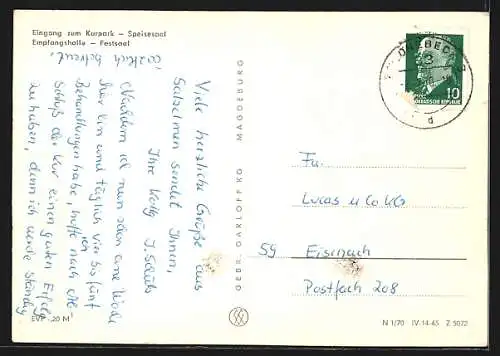 Eingang zum Kurpark – Speisesaal
Empfangshalle – Festsaal
Viele herzliche Grüße aus
Salzelmen sendet Ihnen,
Ihre Kollg. I.
Nachdem ich nun schon eine Woche
hier bin und täglich vier bis fünf
Behandlungen habe, hoffe nach Ab-
schluß der Kur einen guten Erfolg
zu haben, denn ich werde ständig
ärztlich betreut.
EVP -,20 M
GEBR. GARLOFF KG MAGDEBURG
10
DEMOKRATISCHE REPUBLIK
d
Fa.
Lucas u Co KG
59 Eisenach
Postfach 208
N 1/70 IV-14-45 Z 5072